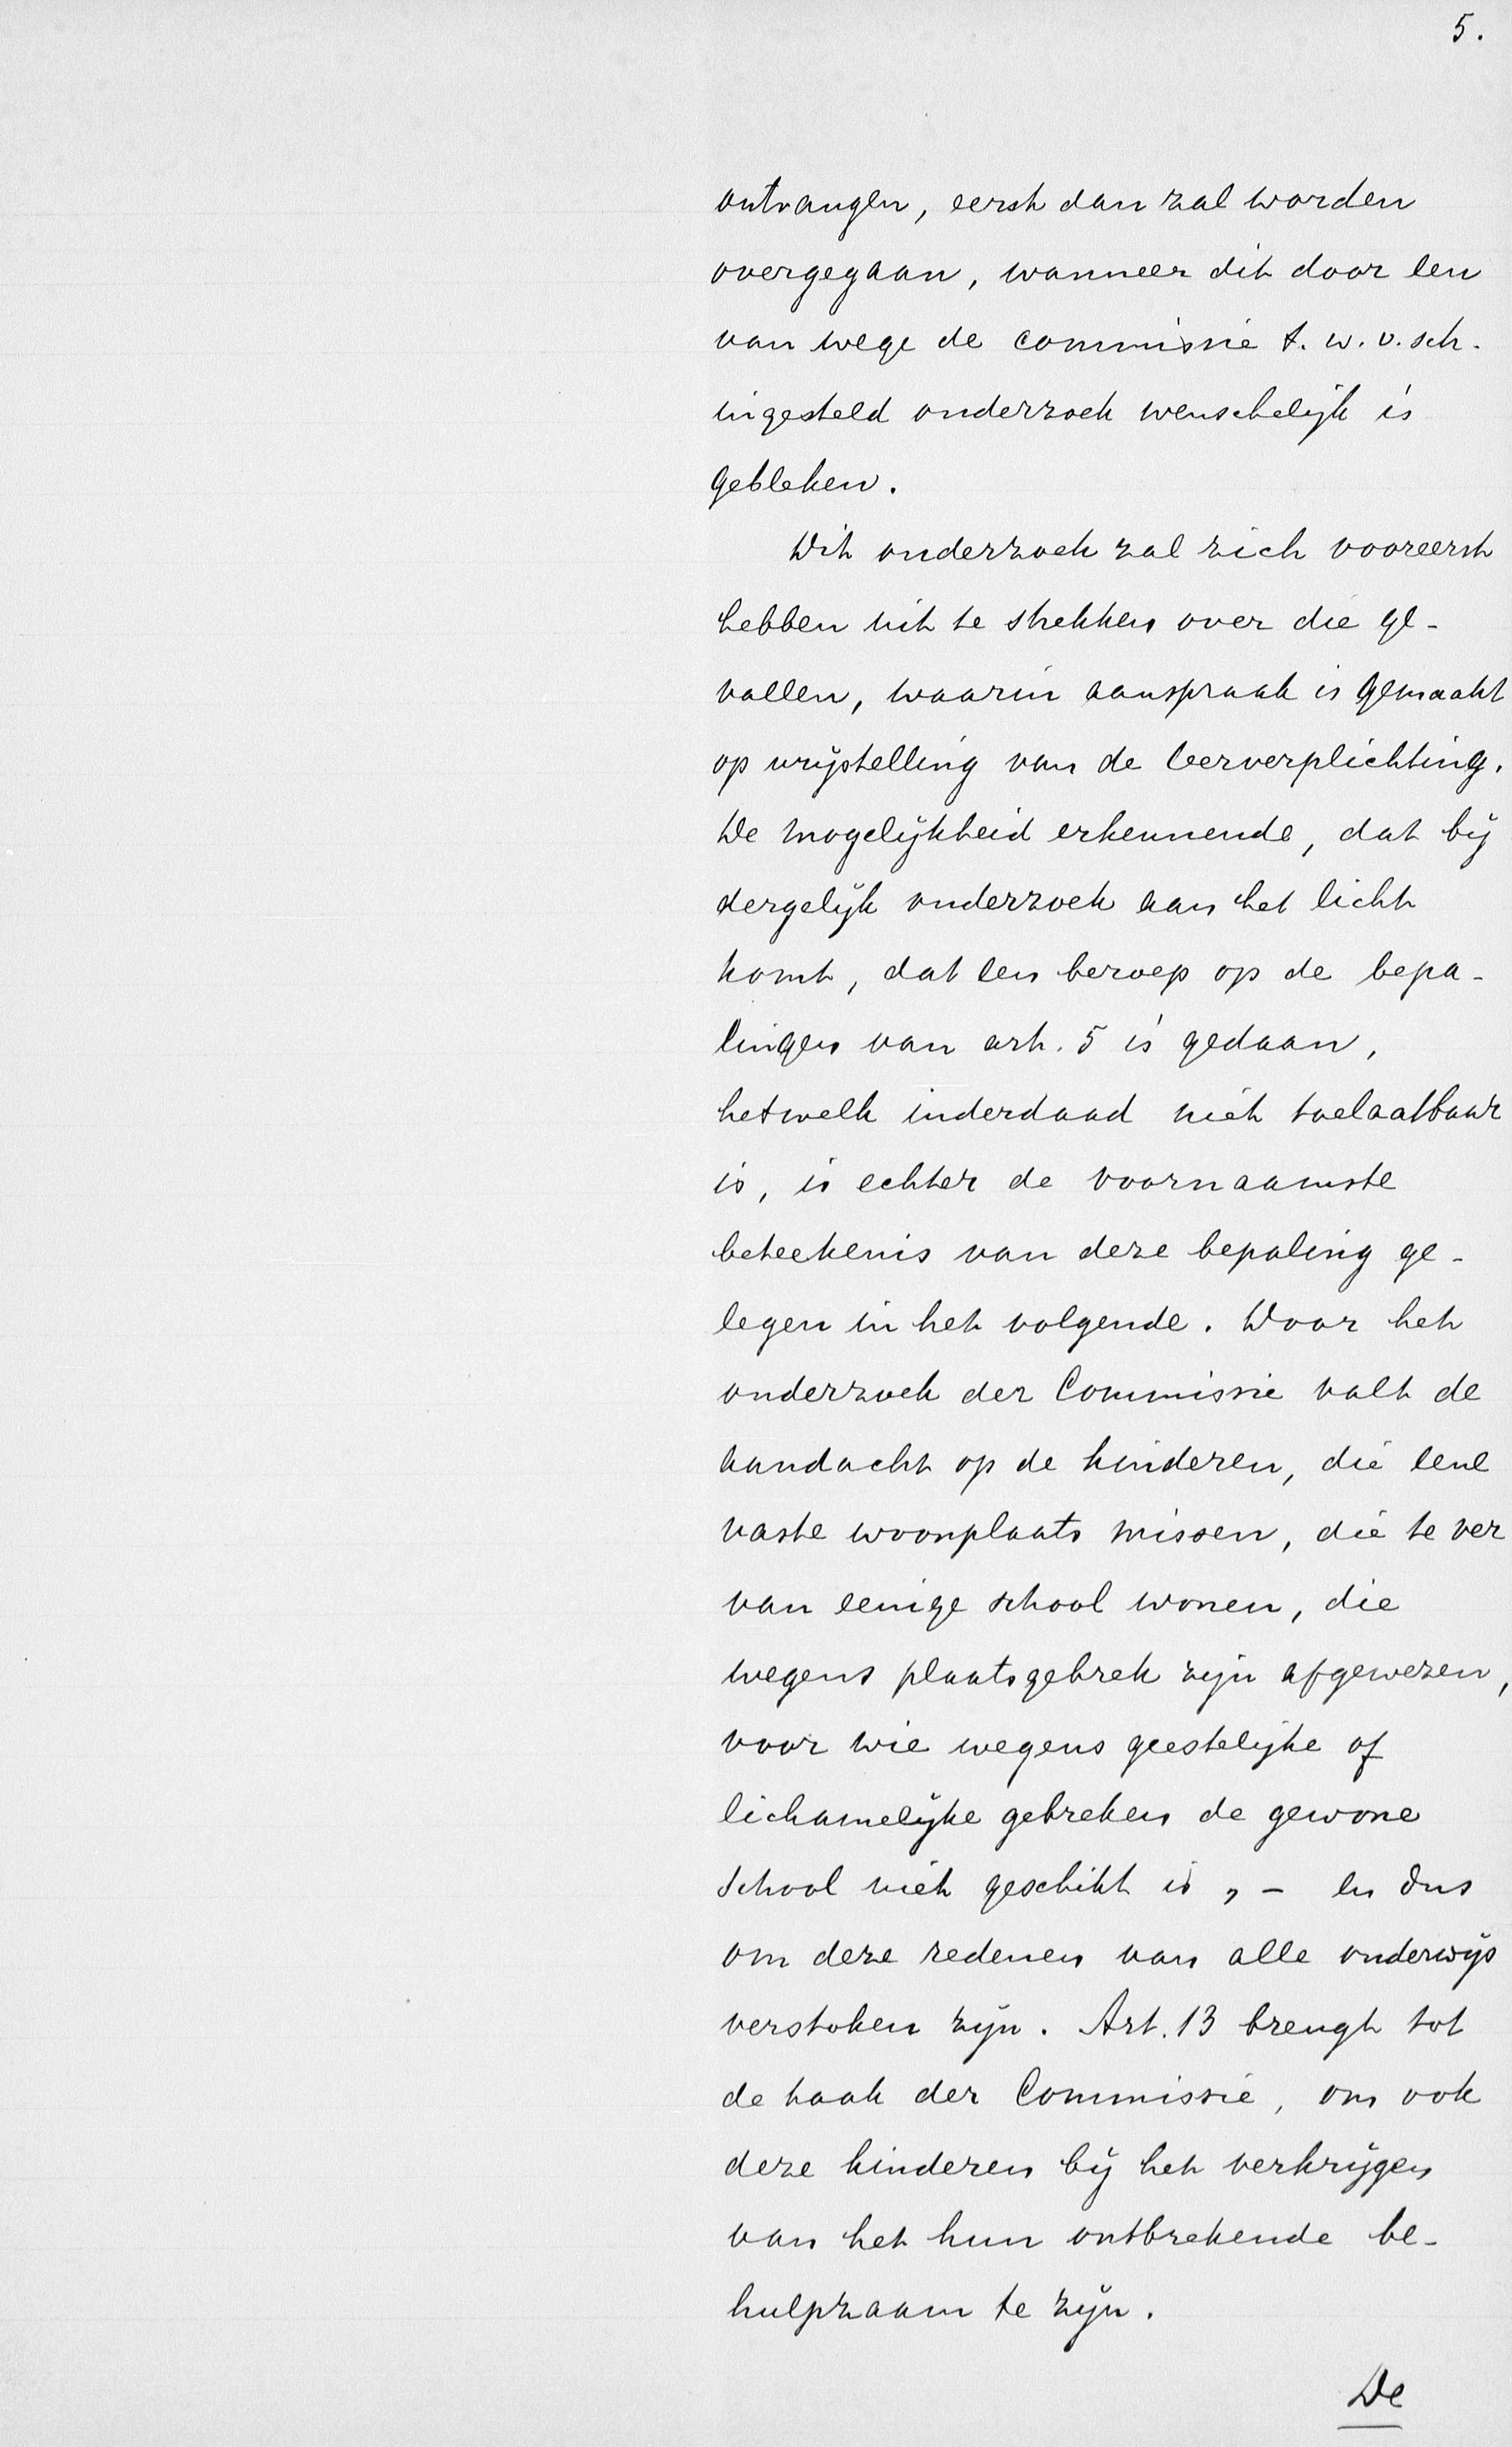 5.
ontvangen, eerst dan zal worden
overgegaan, wanneer dit door een
van wege de commissie t. w. v. sch.
ingesteld onderzoek wenschelijk is
gebleken.
Dit onderzoek zal zich vooreerst
hebben uit te strekken over die ge-
vallen, waarin aanspraak is gemaakt
op vrijstelling van de leerverplichting.
De mogelijkheid erkennende, dat bij
dergelijk onderzoek aan het licht
komt, dat een beroep op de bepa-
lingen van art. 5 is gedaan,
hetwelk inderdaad niet toelaatbaar
is, is echter de voornaamste
beteekenis van deze bepaling ge-
legen in het volgende. Door het
onderzoek der Commissie valt de
aandacht op de kinderen, die eene
vaste woonplaats missen, die te ver
van eenige school wonen, die
wegens plaatsgebrek zijn afgewezen,
voor wie wegens geestelijke of
lichamelijke gebreken de gewone
school niet geschikt is, - en dus
om deze redenen van alle onderwijs
verstoken zijn. Art. 13 brengt tot
de taak der Commissie, om ook
deze kinderen bij het verkrijgen
van het hun ontbrekende be-
hulpzaam te zijn.
De